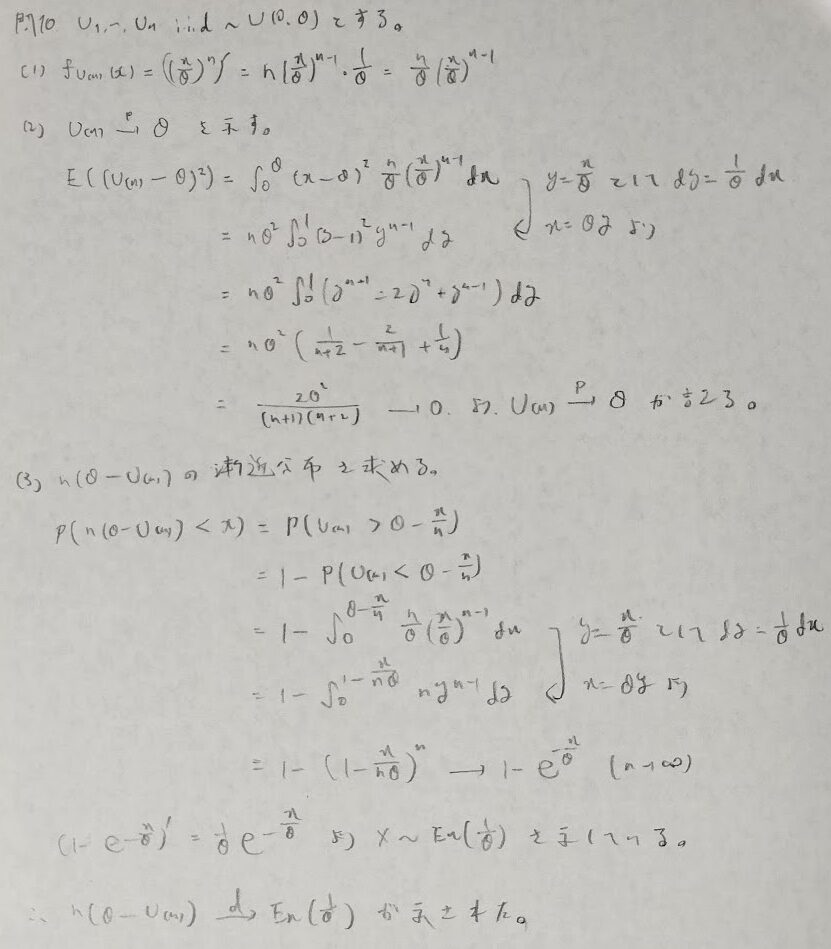 問10 U₁, …, Uₙ i.i.d ~ U(0, θ) とする。
(1) f_{U(n)}(x) = ((x/θ)ⁿ)' = n(x/θ)ⁿ⁻¹ · 1/θ = n/θ (x/θ)ⁿ⁻¹
(2) U(n) →ᵖ θ を示す。
E((U(n) − θ)²) = ∫₀^θ (x−θ)² n/θ (x/θ)ⁿ⁻¹ dx y = x/θ として dy = 1/θ dx
= nθ² ∫₀¹ (y−1)² yⁿ⁻¹ dy x = θy より
= nθ² ∫₀¹ (yⁿ⁺¹ − 2yⁿ + yⁿ⁻¹) dy
= nθ² (1/(n+2) − 2/(n+1) + 1/n)
= 2θ²/((n+1)(n+2)) → 0. より. U(n) →ᴾ θ が言える。
(3) n(θ − U(n)) の漸近分布を求める。
P(n(θ−U(n)) < x) = P(U(n) > θ − x/n)
= 1 − P(U(n) < θ − x/n)
= 1 − ∫₀^{θ−x/n} n/θ (x/θ)ⁿ⁻¹ dx y = x/θ として dy = 1/θ dx
= 1 − ∫₀^{1−x/(nθ)} nyⁿ⁻¹ dy x = θy より
= 1 − (1 − x/(nθ))ⁿ → 1 − e^{−x/θ} (n→∞)
(1 − e^{−x/θ})' = 1/θ e^{−x/θ} より X ~ Ex(1/θ) を示している。
∴ n(θ − U(n)) →ᵈ Ex(1/θ) が示された。